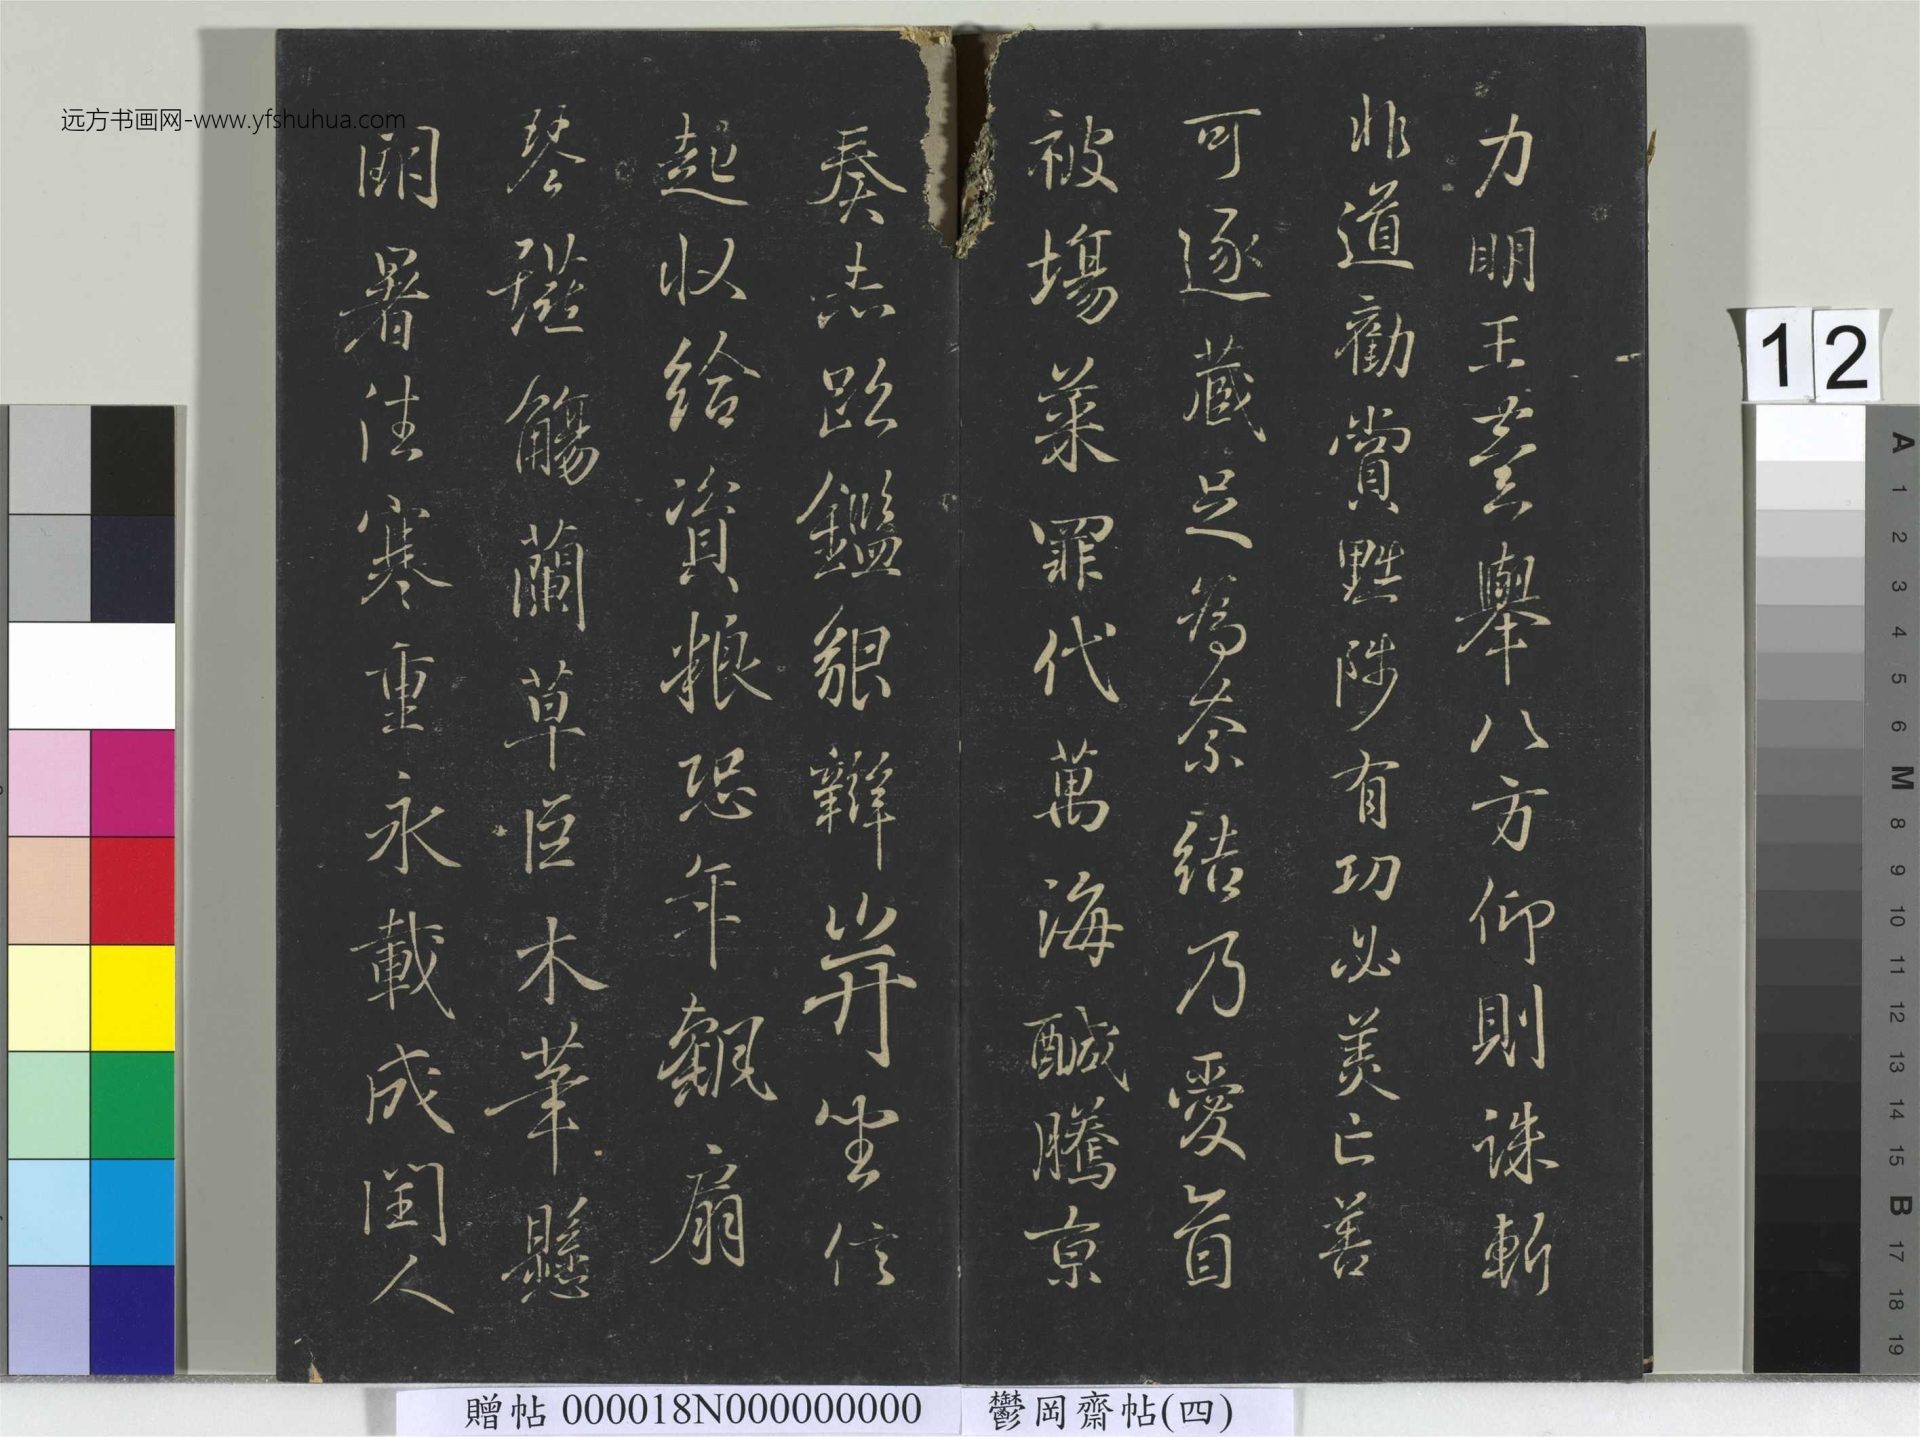 力明王芸舉八方仰則誅斬
非道勸賞黜陟有功必美亡善
可逐藏足為奈結乃愛首
被場菜罪代萬海鹹騰京
奏志跎鑑貌辯并坐信
起收給資粮恐年觀扇
琴筵觴蘭草臣木華懸
明暑往寒重永載成閏人
远方书画网-www.yfshuhua.com
12
贈帖 000018N000000000
鬱岡齋帖(四)
A 1 2 3 4 5 6 M 8 9 10 11 12 13 14 15 B 17 18 19